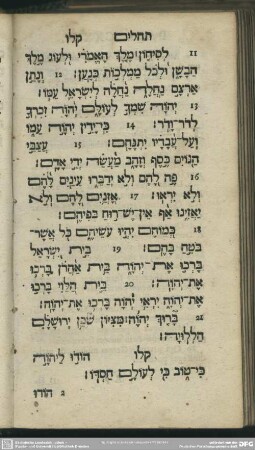 תהלים קלו
11 לְסִיחוֹן מֶלֶךְ הָאֱמֹרִי וּלְעוֹג מֶלֶךְ
הַבָּשָׁן וּלְכֹל מַמְלְכוֹת כְּנָעַן׃ 12 וְנָתַן
אַרְצָם נַחֲלָה נַחֲלָה לְיִשְׂרָאֵל עַמּוֹ׃
13 יְהוָה שִׁמְךָ לְעוֹלָם יְהוָה זִכְרְךָ
לְדֹר־וָדֹר׃ 14 כִּי־יָדִין יְהוָה עַמּוֹ
וְעַל־עֲבָדָיו יִתְנֶחָם׃ 15 עֲצַבֵּי
הַגּוֹיִם כֶּסֶף וְזָהָב מַעֲשֵׂה יְדֵי אָדָם׃
16 פֶּה לָהֶם וְלֹא יְדַבֵּרוּ עֵינַיִם לָהֶם
וְלֹא יִרְאוּ׃ 17 אָזְנַיִם לָהֶם וְלֹא
יַאֲזִינוּ אַף אֵין־יֶשׁ־רוּחַ בְּפִיהֶם׃
18 כְּמוֹהֶם יִהְיוּ עֹשֵׂיהֶם כֹּל אֲשֶׁר־
בֹּטֵחַ בָּהֶם׃ 19 בֵּית יִשְׂרָאֵל
בָּרְכוּ אֶת־יְהוָה בֵּית אַהֲרֹן בָּרְכוּ
אֶת־יְהוָה׃ 20 בֵּית הַלֵּוִי בָּרְכוּ
אֶת־יְהוָה יִרְאֵי יְהוָה בָּרְכוּ אֶת־יְהוָה׃
21 בָּרוּךְ יְהוָה מִצִּיּוֹן שֹׁכֵן יְרוּשָׁלִָם
הַלְלוּיָהּ׃
קלו הוֹדוּ לַיהוָה
כִּי־טוֹב כִּי לְעוֹלָם חַסְדּוֹ׃
2 הודו